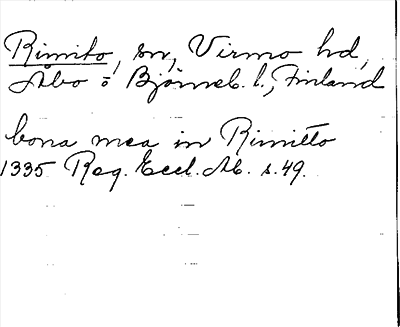 Rimito, sn, Virmo hd,
Åbo o Björneb. l., Finland
bona mea in Rimitto
1335 Reg. Eccl. Ab. s. 49.